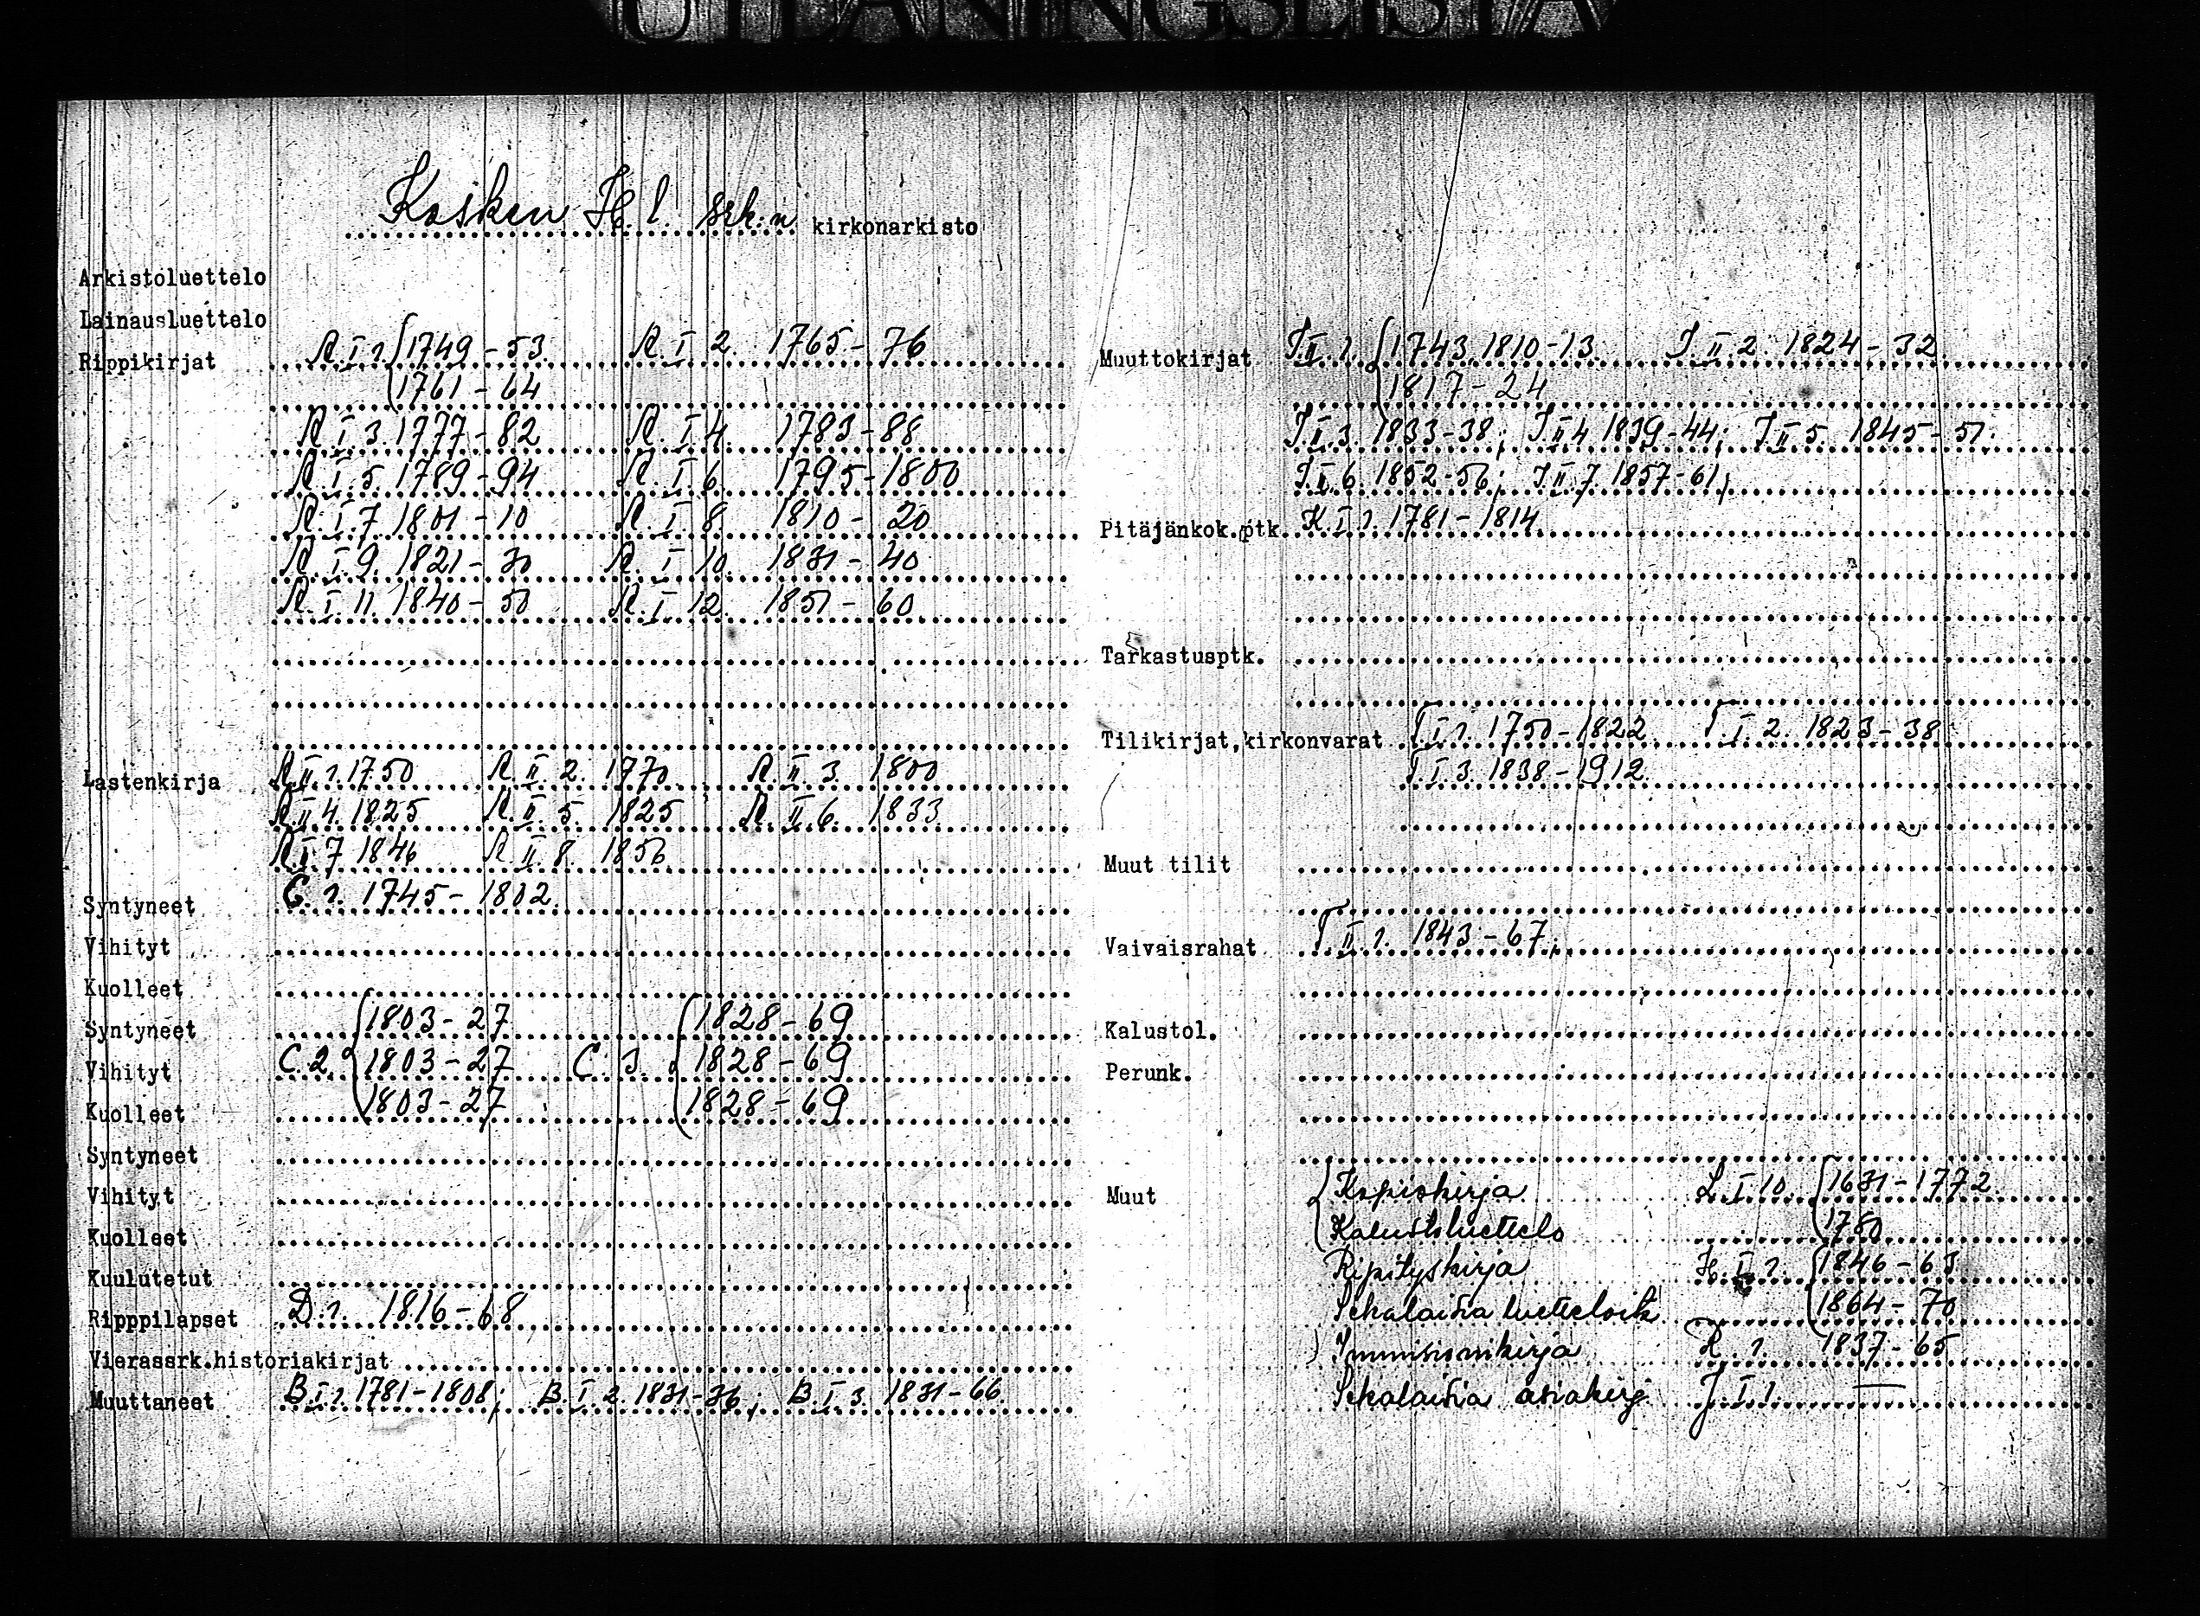 UTLÅNINGSLISTA
Kosken H.l. srk:n kirkonarkisto
Arkistoluettelo
Lainausluettelo
Rippikirjat R.I.1. 1749-53. R.I.2. 1765-76
1761-64
R.I.3. 1777-82 R.I.4. 1783-88
R.I.5. 1789-94 R.I.6. 1795-1800
R.I.7 1801-10 R.I.8. 1810-20
R.I.9. 1821-30 R.I.10. 1831-40
R.I.11. 1840-50 R.I.12. 1851-60
Lastenkirja R.II.1. 1750 R.II.2. 1770. R.II.3. 1800
R.II.4. 1825 R.II.5. 1825 R.II.6. 1833
R.II.7 1846 R.II.8. 1856
Syntyneet C.1. 1745-1802.
Vihityt
Kuolleet
Syntyneet 1803-27 1828-69
Vihityt C.2. 1803-27 C.3. 1828-69
Kuolleet 1803-27 1828-69
Syntyneet
Vihityt
Kuolleet
Kuulutetut
Ripppilapset D.1. 1816-68
Vierassrk.historiakirjat
Muuttaneet B.I.1. 1781-1808; B.I.2. 1831-36; B.I.3. 1831-66
Muuttokirjat J.II.1. 1743. 1810-13. J.II.2. 1824-32
1817-24
J.II.3. 1833-38; J.II.4. 1839-44; J.II.5. 1845-51.
J.II.6. 1852-56; J.II.7. 1857-61;
Pitäjänkok.ptk. K.I.1. 1781-1814.
Tarkastusptk.
Tilikirjat,kirkonvarat T.I.1. 1750-1822. T.I.2. 1823-38
T.I.3. 1838-1912.
Muut tilit
Vaivaisrahat T.II.1. 1843-67.
Kalustol.
Perunk.
Muut Kopiokirja L.I.10. 1631-1772
Kalustoluettelo 1780
Ripityskirja H.I.1. 1846-63
Sekalaisia luetteloita 1864-70
Immisionikirja R.1. 1837-65
Sekalaisia asiakirj. J.I.1. —